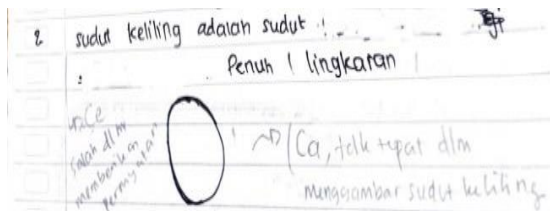 2 sudut keliling adalah sudut :
: Penuh 1 lingkaran
Ce
salah dlm
memberikan
pernyataan
Ca, tdk tepat dlm
menggambar sudut keliling